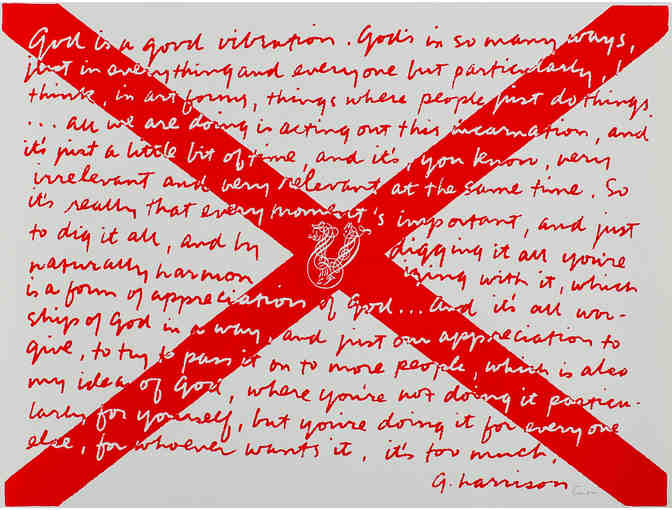 God is a good vibration. God's in so many ways,
just in everything and everyone but particularly, I
think, in art forms, things where people just do things
... all we are doing is acting out this incarnation, and
it's just a little bit of time, and it's, you know, very
irrelevant and very relevant at the same time. So
it's really that every moment's important, and just
to dig it all, and by digging it all you're
naturally harmonizing with it, which
is a form of appreciation of God... And it's all wor-
ship of God in a way, and just our appreciation to
give, to try to pass it on to more people, which is also
my idea of God, where you're not doing it particu-
larly for yourself, but you're doing it for everyone
else, for whoever wants it, it's too much.
G. Harrison